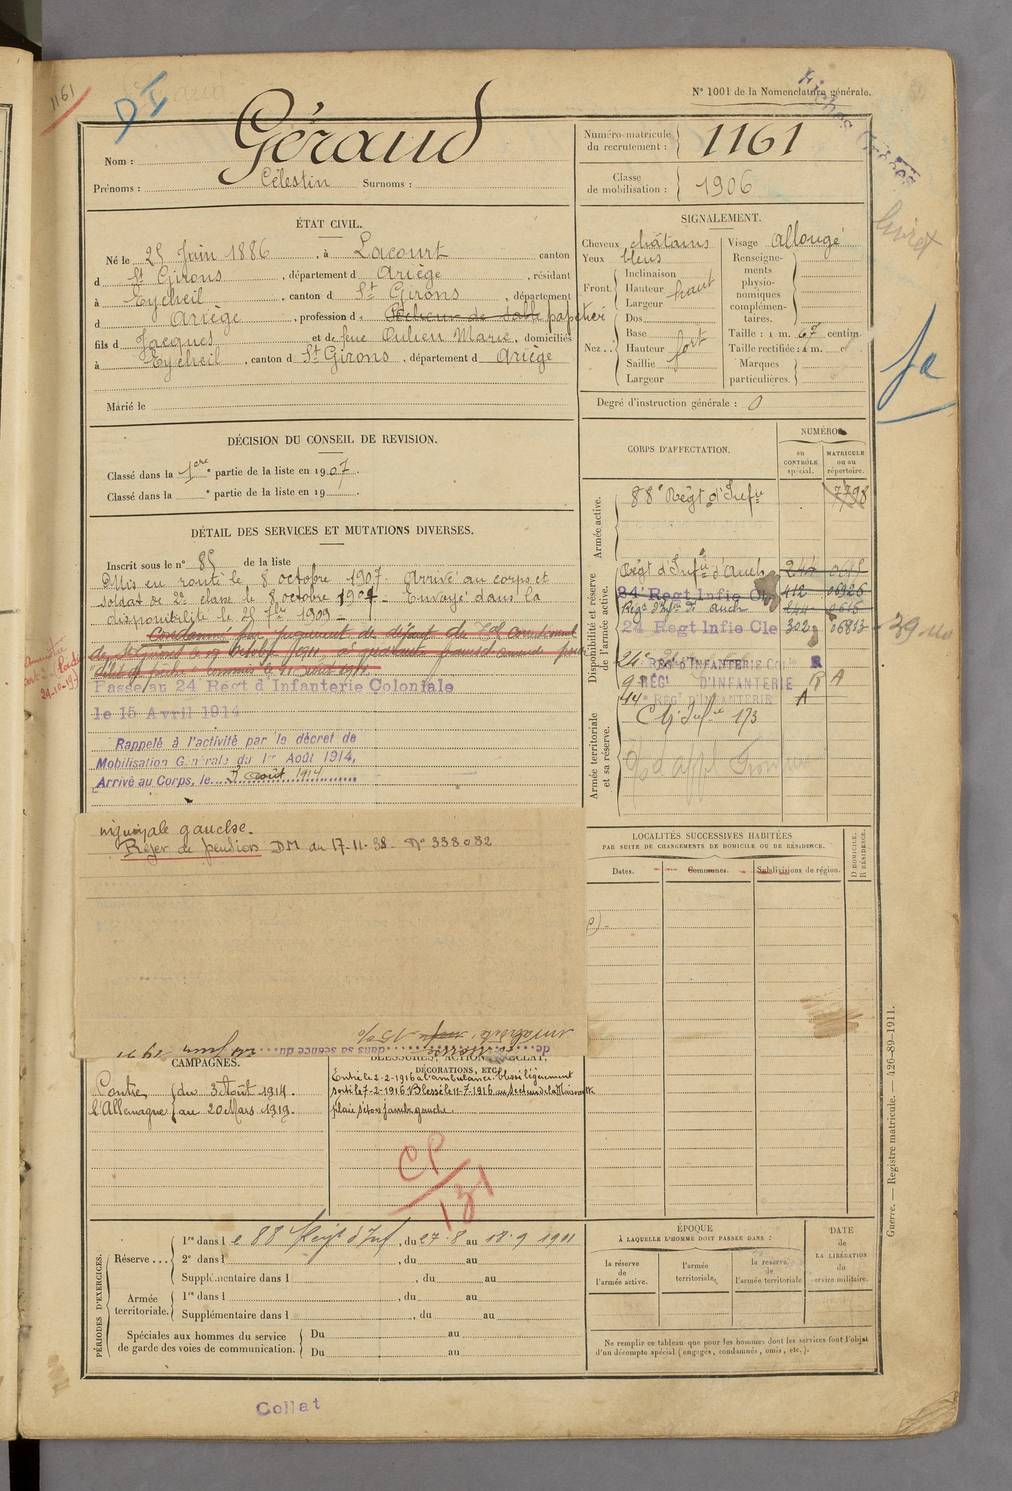 1161
N° 1001 de la Nomenclature générale.
Nom : Géraud
Prénoms : Célestin Surnoms :
Numéro matricule du recrutement : 1161
Classe de mobilisation : 1906
ÉTAT CIVIL.
Né le 25 Juin 1886, à Lacourt canton
d St Girons, département d Ariège, résidant
à Eycheil, canton d St Girons, département
d Ariège, profession d papetier
fils d Jacques et de feue Aulien Marie, domiciliés
à Eycheil, canton d St Girons, département d Ariège
Marié le
SIGNALEMENT.
Cheveux châtains Visage allongé
Yeux bleus
Renseignements physionomiques complémentaires.
Front. Inclinaison
Hauteur haut
Largeur
Nez. Dos
Base
Hauteur fort
Saillie
Largeur
Taille : 1 m. 67 centim.
Taille rectifiée : 1 m.
Marques particulières.
Degré d'instruction générale : 0
livret
DÉCISION DU CONSEIL DE REVISION.
Classé dans la 1ère partie de la liste en 1907.
Classé dans la ° partie de la liste en 19
DÉTAIL DES SERVICES ET MUTATIONS DIVERSES.
Inscrit sous le n° 85 de la liste
Mis en route le 8 octobre 1907. Arrivé au corps et
soldat de 2e classe le 8 octobre 1907. Envoyé dans la
disponibilité le 25 7bre 1909
Condamné par jugement de défaut du
Passé au 24 Régt d'Infanterie Coloniale
le 15 Avril 1914
Rappelé à l'activité par le décret de
Mobilisation Générale du 1er Août 1914,
Arrivé au Corps, le août 1914
inguinale gauche.
Rejet de pension DM du 17-11-38 N° 338082
dans sa séance du
CORPS D'AFFECTATION.
NUMÉROS
au CONTRÔLE spécial.
MATRICULE ou au répertoire.
Armée active.
88e Régt d'Infie 7798
Disponibilité et réserve de l'armée active.
Régt d'Infie d'Auch 244 0615
24e Regt Infie Cle 412 06926
Régt d'Infie de Auch 244 0615
24 Regt Infie Cle 302 06813
24e RÉGt D'INFANTERIE Cole R
9e RÉGt D'INFANTERIE R A
44e RÉGt D'INFANTERIE A
Armée territoriale et sa réserve.
LOCALITÉS SUCCESSIVES HABITÉES
PAR SUITE DE CHANGEMENTS DE DOMICILE OU DE RÉSIDENCE.
Dates. Communes. Subdivisions de région. D DOMICILE. R RÉSIDENCE.
CAMPAGNES.
Contre l'Allemagne du 3 Août 1914.
au 20 Mars 1919.
BLESSURES, ACTIONS D'ÉCLAT,
DÉCORATIONS, ETC.
Entré le 2-2-1916 à l'ambulance blessé légèrement
sorti le 7-2-1916 Blessé le 11-7-1916 au secteur de la Maisonnette
plaie séton jambe gauche.
CP
131
PÉRIODES D'EXERCICES.
Réserve... 1re dans le 88 Régt d'Inf, du 27-8 au 18-9 1911
2e dans l , du au
Supplémentaire dans l , du au
Armée territoriale. 1re dans l , du au
Supplémentaire dans l , du au
Spéciales aux hommes du service de garde des voies de communication. Du au
Du au
ÉPOQUE
À LAQUELLE L'HOMME DOIT PASSER DANS :
la réserve de l'armée active.
l'armée territoriale.
la réserve de l'armée territoriale
DATE DE LA LIBÉRATION du service militaire.
Ne remplir ce tableau que pour les hommes dont les services font l'objet
d'un décompte spécial (engagés, condamnés, omis, etc.).
Guerre. — Registre matricule. — 426-89-1911.
Collat